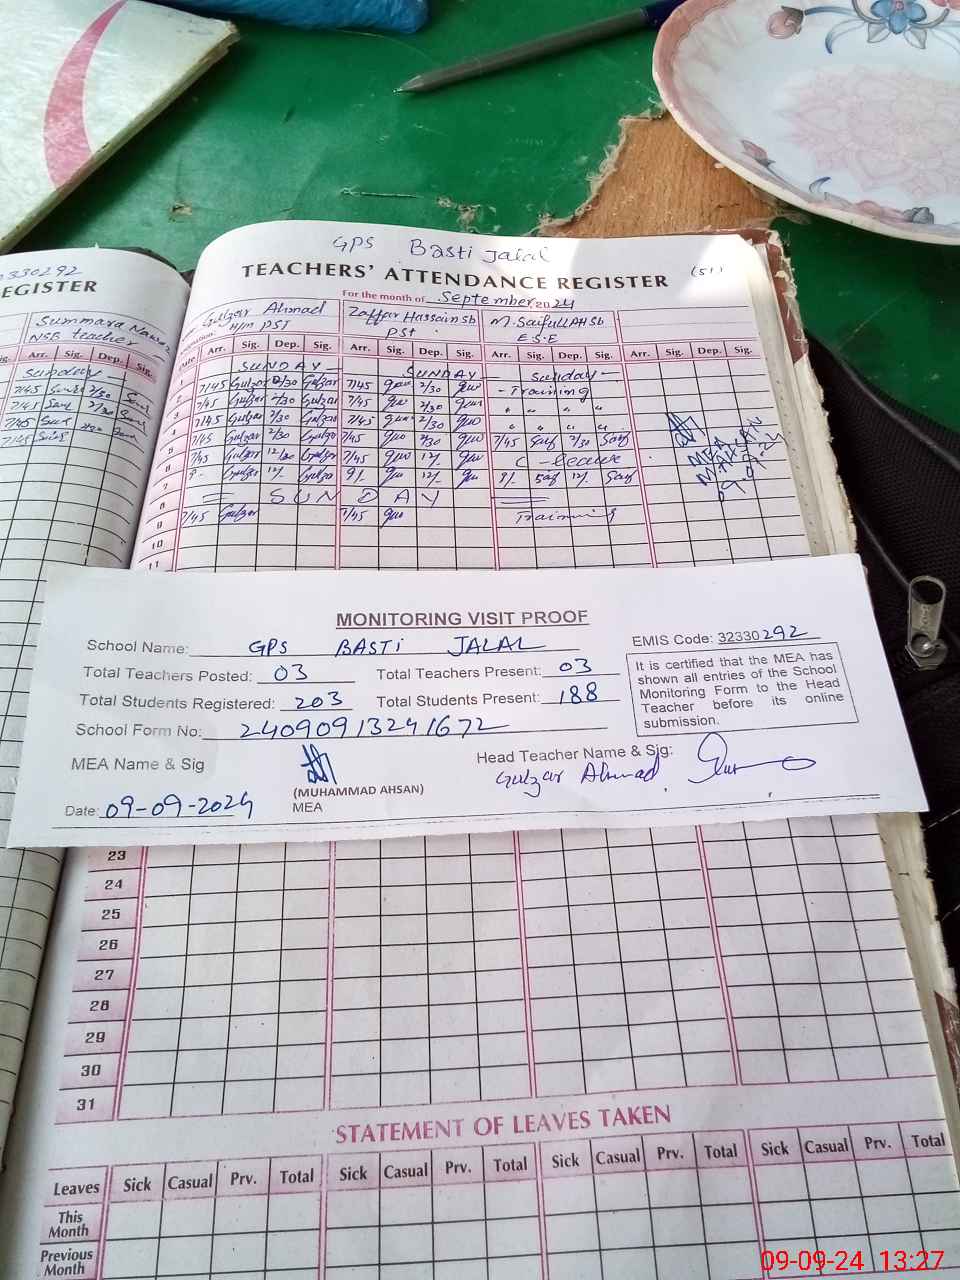 GPS Basti Jalal
330292
EGISTER
TEACHERS' ATTENDANCE REGISTER (51)
For the month of September 2024
Summara
NSB teacher
Gulzar Ahmad
H/m PST
Zaffar Hussain Sb
PSt
M. SaifullAH Sb
E.S.E
Arr. Sig. Dep. Sig.
Date Arr. Sig. Dep. Sig. Arr. Sig. Dep. Sig. Arr. Sig. Dep. Sig. Arr. Sig. Dep. Sig.
Sunday
1 SUNDAY SUNDAY Sunday
2 7/45 Gulzar 2/30 Gulzar 7/45 2/30 Training
3 7/45 Gulzar 2/30 Gulzar 7/45 2/30 " " " "
4 7/45 Gulzar 2/30 Gulzar 7/45 2/30 " " " "
5 7/45 Gulzar 2/30 Gulzar 7/45 2/30 7/45 Saif 2/30 Saif
6 7/45 Gulzar 12/30 Gulzar 7/45 12/- C-leave
7 Gulzar 12/- Gulzar 12/- 8/- Saif 12/- Saif
8 SUNDAY
9 7/45 Gulzar 7/45 Training
10
11
MEA
09-09-24
MONITORING VISIT PROOF
School Name: GPS BASTi JALAL EMIS Code: 32330292
Total Teachers Posted: 03 Total Teachers Present: 03
Total Students Registered: 203 Total Students Present: 188
School Form No: 24090913241672
It is certified that the MEA has
shown all entries of the School
Monitoring Form to the Head
Teacher before its online
submission.
MEA Name & Sig
(MUHAMMAD AHSAN)
MEA
Head Teacher Name & Sig:
Gulzar Ahmad
Date: 09-09-2024
23
24
25
26
27
28
29
30
31
STATEMENT OF LEAVES TAKEN
Leaves Sick Casual Prv. Total Sick Casual Prv. Total Sick Casual Prv. Total Sick Casual Prv. Total
This
Month
Previous
Month
09-09-24 13:27